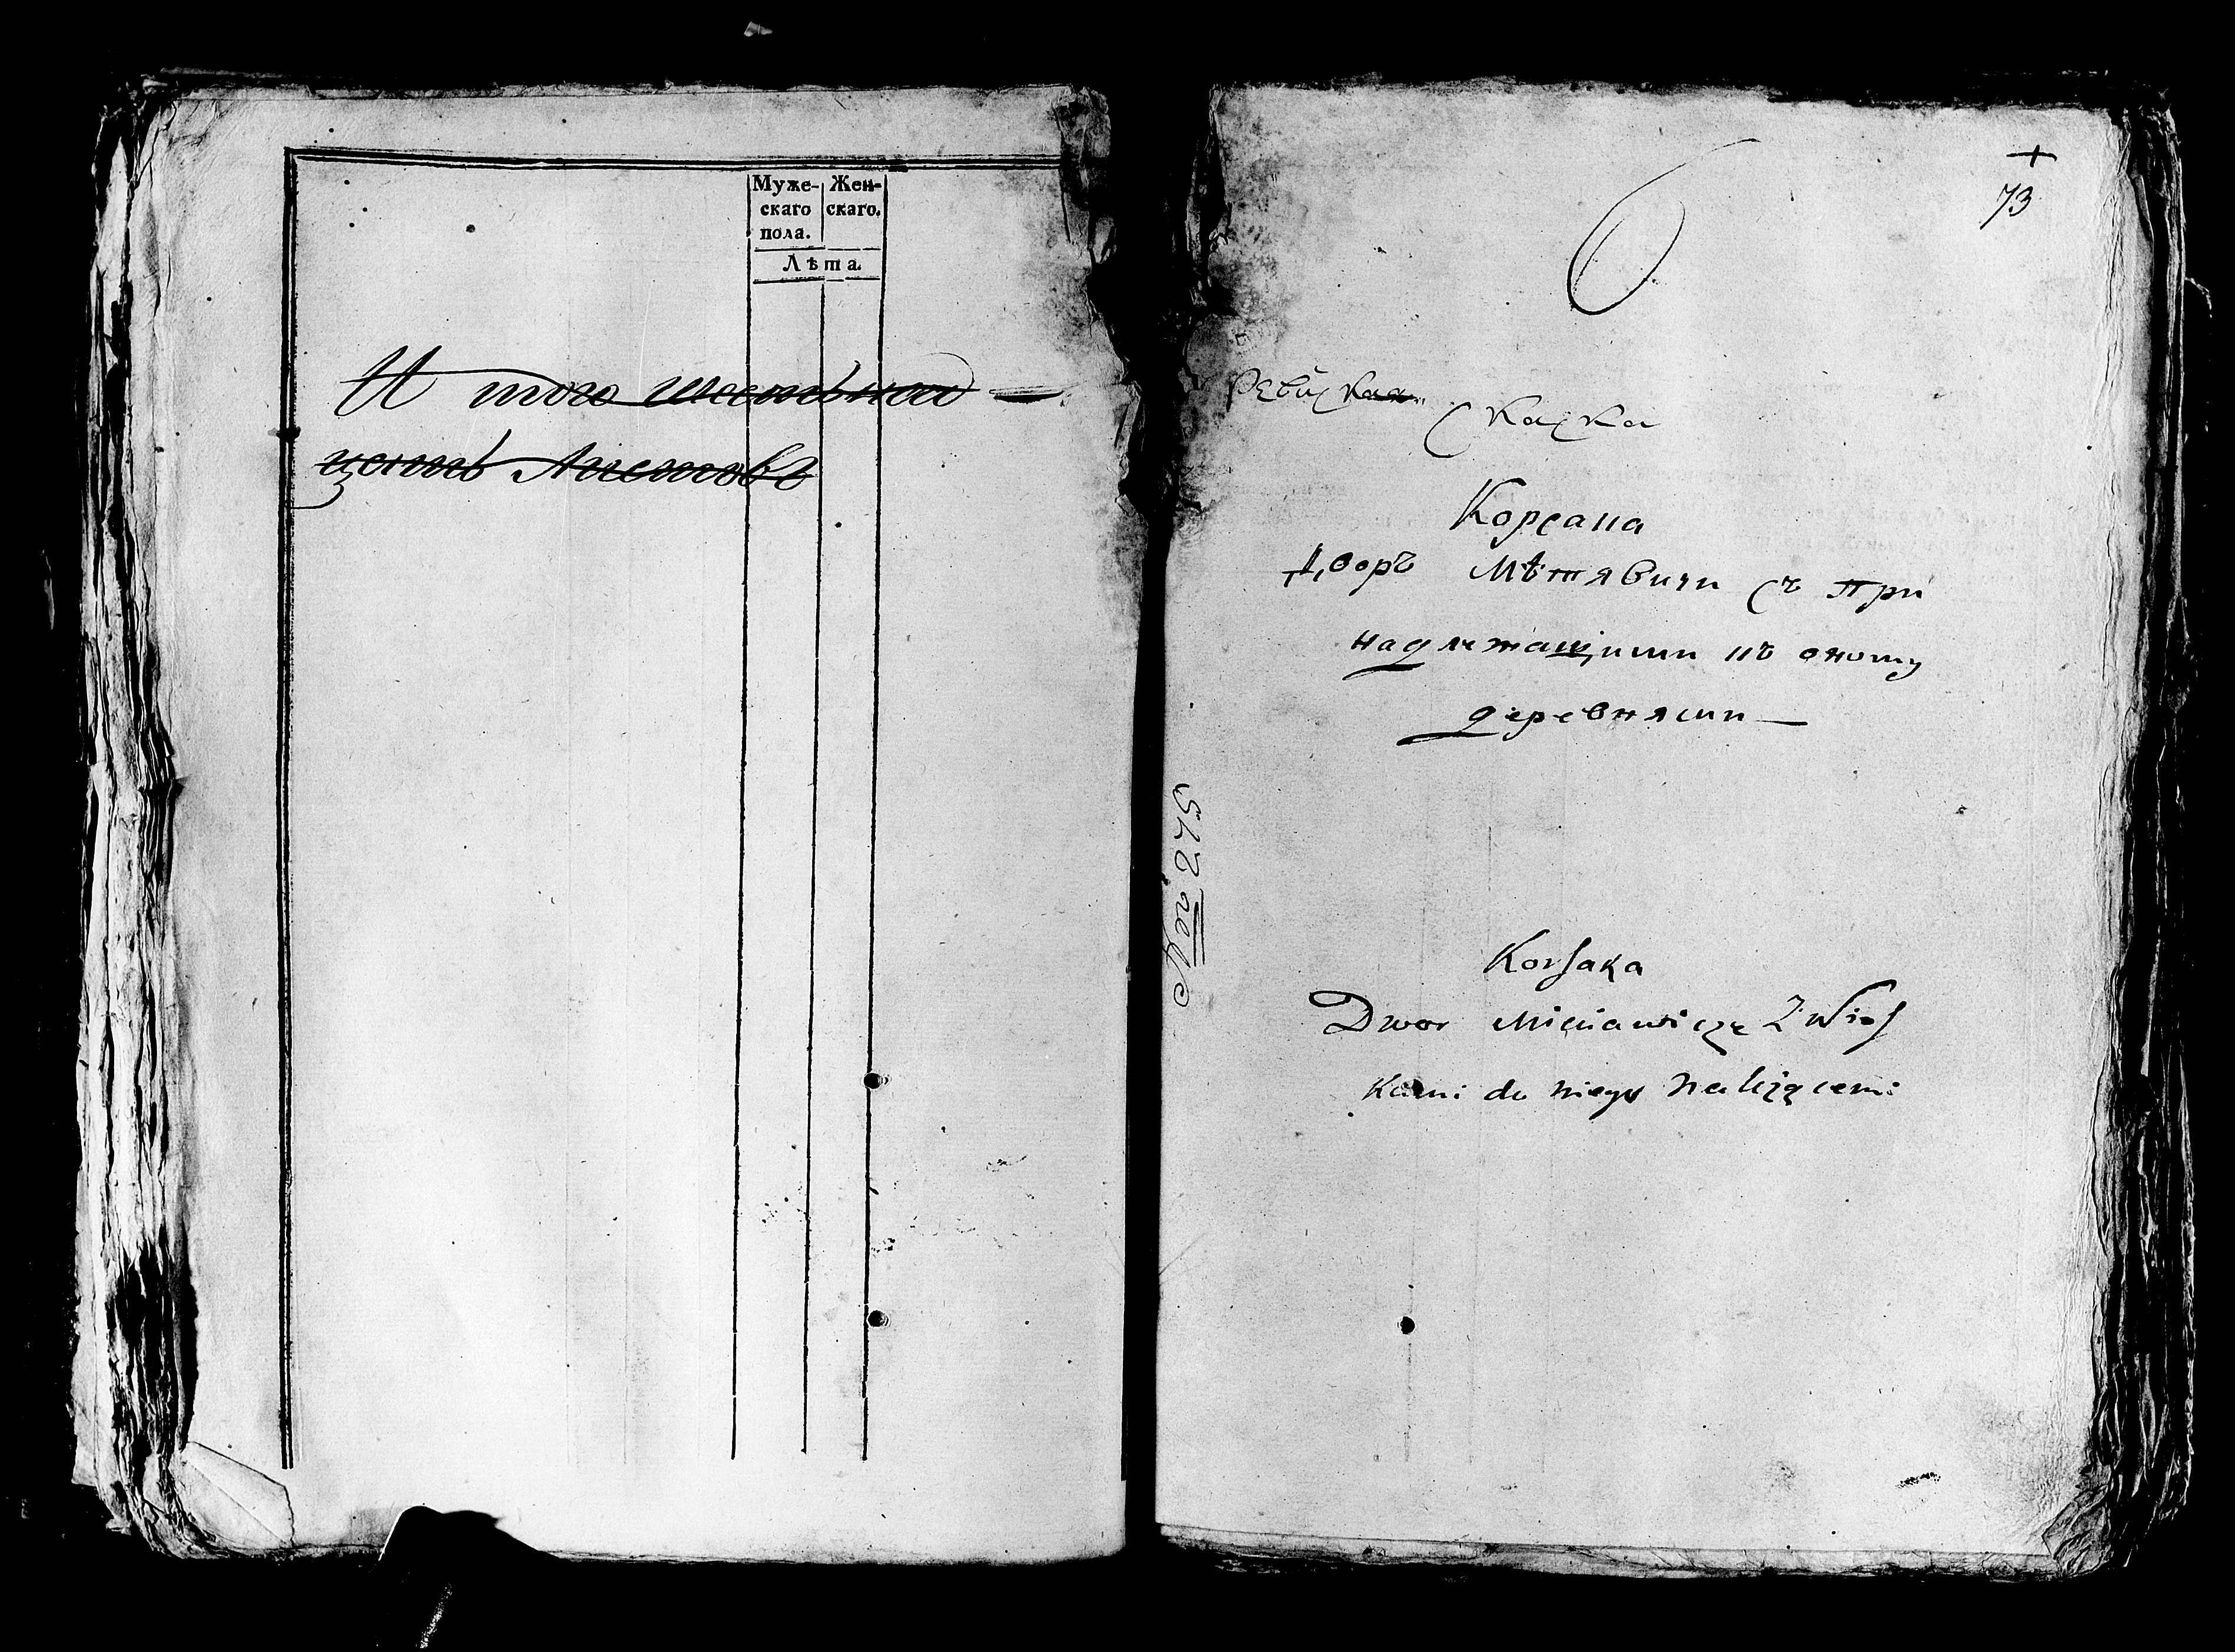 Муже- Жен-
скаго скаго.
пола.
Лѣта.
И того шестьнад
цать листовъ
+
73
6
Ревиская
Скаска
Корсака
Дворъ Мѣтявичи съ при
надлежащими къ оному
деревнями
№ 275
Korsaka
Dwor Mieciawicze z Wios
kami do niego należącemi